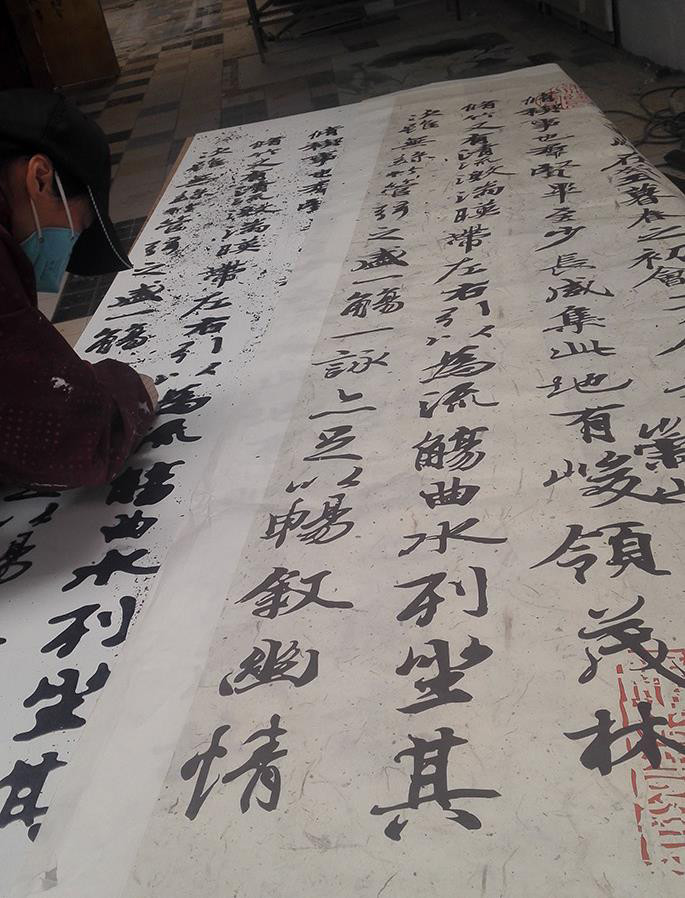 暮春之初會
脩禊事也羣賢畢至少長咸集此地有崇山峻領茂林
脩竹又有清流激湍暎帶左右引以為流觴曲水列坐其
次雖無絲竹管弦之盛一觴一詠亦足以暢敘幽情
脩禊事也羣
脩竹又有清流激湍暎帶左右引以為流觴曲水列坐其
次雖無絲竹管弦之盛一觴